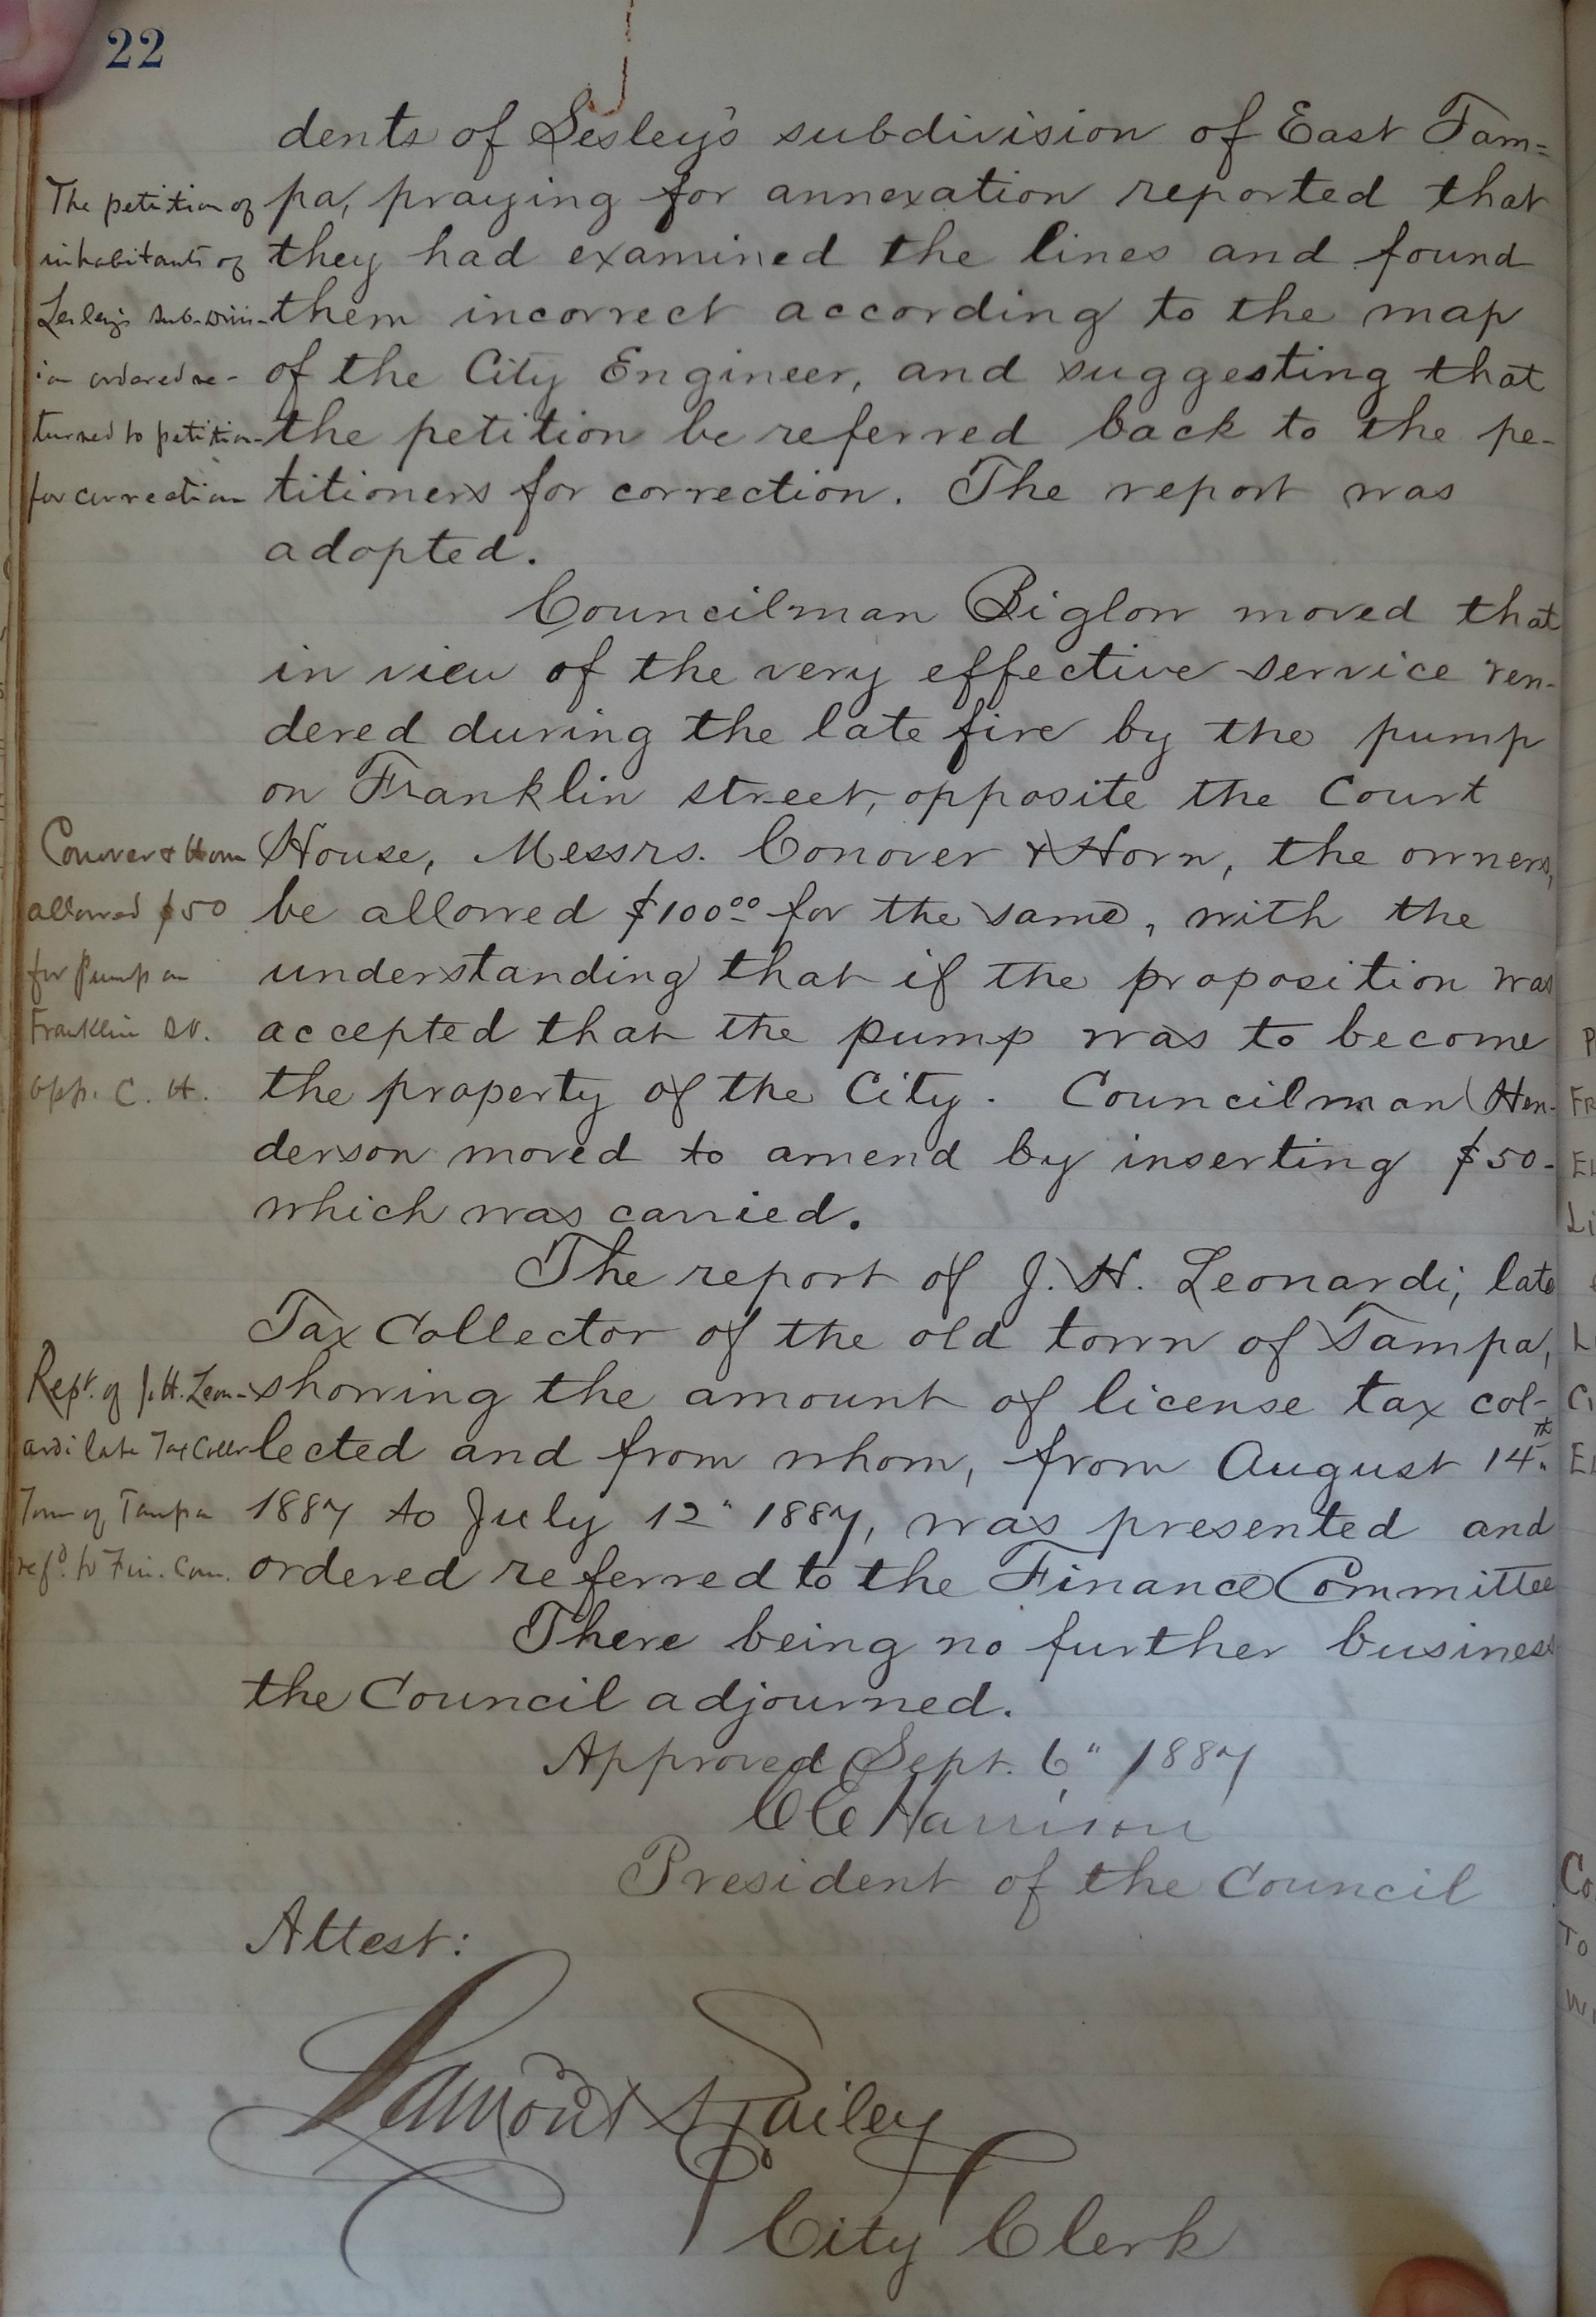 22
dents of Lesley's subdivision of East Tam=
pa, praying for annexation reported that
they had examined the lines and found
them incorrect according to the map
of the City Engineer, and suggesting that
the petition be referred back to the pe-
titioners for correction. The report was
adopted.
The petition of
inhabitants of
Lesley's sub-divis-
ion ordered re-
turned to petition-
for correction
Councilman Biglow moved that
in view of the very effective service ren-
dered during the late fire by the pump
on Franklin street, opposite the Court
House, Messrs. Conover & Horn, the owners,
be allowed $100.00 for the same, with the
understanding that if the proposition was
accepted that the pump was to become
the property of the City. Councilman Hen-
derson moved to amend by inserting $50-
which was carried.
Conover & Horn
allowed $50
for Pump on
Franklin St.
opp. C. H.
The report of J. H. Leonardi, late
Tax Collector of the old town of Tampa,
showing the amount of license tax col-
lected and from whom, from August 14th
1887 to July 12" 1887, was presented and
ordered referred to the Finance Committee
Rept. of J. H. Leon-
ardi late Tax Collr
Town of Tampa
refd. to Fin. Com.
There being no further business
the Council adjourned.
Approved Sept. 6" 1887
C E Harrison
President of the Council
Attest:
Lamont Bailey
City Clerk